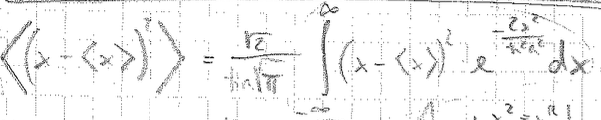 ⟨(x - <x>)²⟩ = √2 / (ħa√π) ∫_{-∞}^{∞} (x - <x>)² e^{-2x²/(ħ²a²)} dx